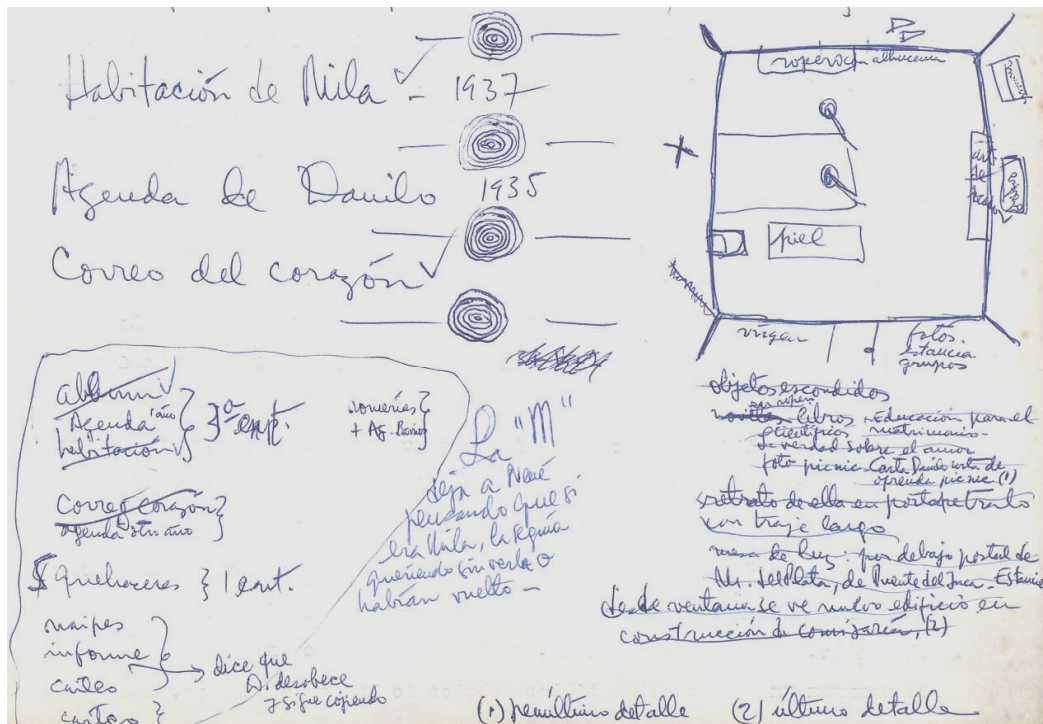 Habitación de Mila ✓ - 1937
Agenda de Danilo 1935
Correo del corazón ✓
ropero con alhucema
piel
virgen
fotos.
estancia
grupos
album ✓
Agenda 1 año
habitación ✓
3ª ent.
romerías
+ Ag.
Correo corazón
agenda otro año
quehaceres } 1 ent.
naipes
informe
carteo
carteo
dice que
D. desobece
y sigue cojiendo
La "M"
deja a Nené
pensando que si
era Mila, la seguía
queriendo sin verla o
habían vuelto -
objetos escondidos
en ropero
novelas libros Educación para el
científicos matrimonio -
La verdad sobre el amor
foto picnic - Carta Danilo
prenda picnic (1)
retrato de ella en portarretrato
con traje largo
mesa de luz: por debajo postal de
M. del Plata, de Puente del Inca - Estancia
desde ventana se ve nuevo edificio en
construcción de comisaría, (2)
(1) penúltimo detalle (2) último detalle